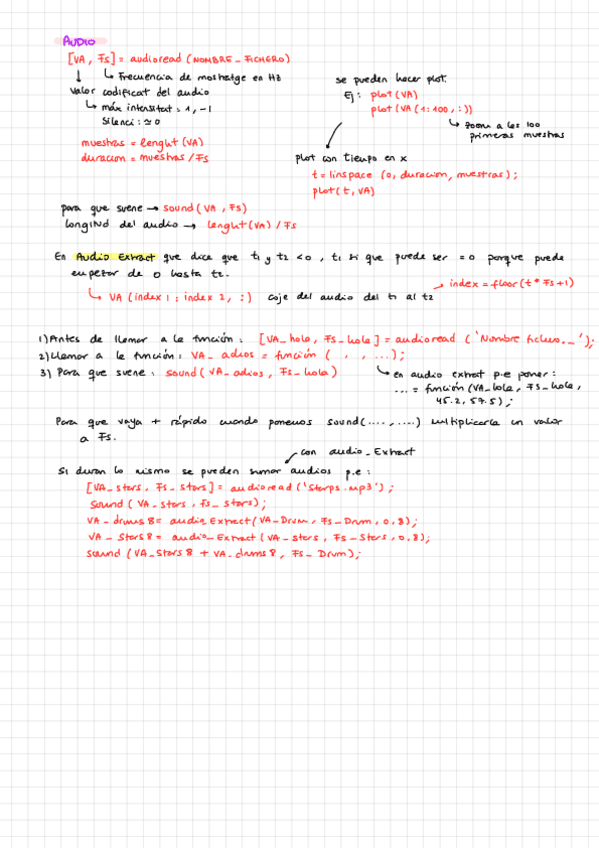 AUDIO
[VA, Fs] = audioread (NOMBRE_FICHERO)
Frecuencia de mostratge en Hz
Valor codificat del audio
màx intensitat: 1, -1
Silenci: ≃ 0
muestras = lenght (VA)
duracion = muestras / Fs
se pueden hacer plot.
Ej: plot (VA)
plot (VA (1:100, :))
zoom a les 100
primeras muestras
plot con tiempo en x
t = linspace (0, duracion, muestras);
plot (t, VA)
para que suene → sound (VA, Fs)
longitud del audio → lenght (VA) / Fs
En Audio Extract que dice que t1 y t2 < 0, t1 si que puede ser = 0 porque puede
empezar de 0 hasta t2.
index = floor (t * Fs + 1)
VA (index 1 : index 2, :) coje del audio del t1 al t2
1) Antes de llamar a la función: [VA_hola, Fs_hola] = audioread ('Nombre fichero._');
2) Llamar a la función: VA_adios = función ( , , ...);
3) Para que suene: sound (VA_adios, Fs_hola)
en audio extract p.e poner:
... = función (VA_hola, Fs_hola,
45.2, 57.5);
Para que vaya + rápido cuando ponemos sound (...., .....) multiplicarla un valor
a Fs.
con audio_Extract
Si duran lo mismo se pueden sumar audios p.e:
[VA_stars, Fs_stars] = audioread ('Starps.mp3');
Sound (VA_stars, Fs_stars);
VA_drums8 = audio_Extract (VA_Drum, Fs_Drum, 0, 8);
VA_Stars8 = audio_Extract (VA_stars, Fs_Stars, 0, 8);
sound (VA_Stars8 + VA_drums8, Fs_Drum);